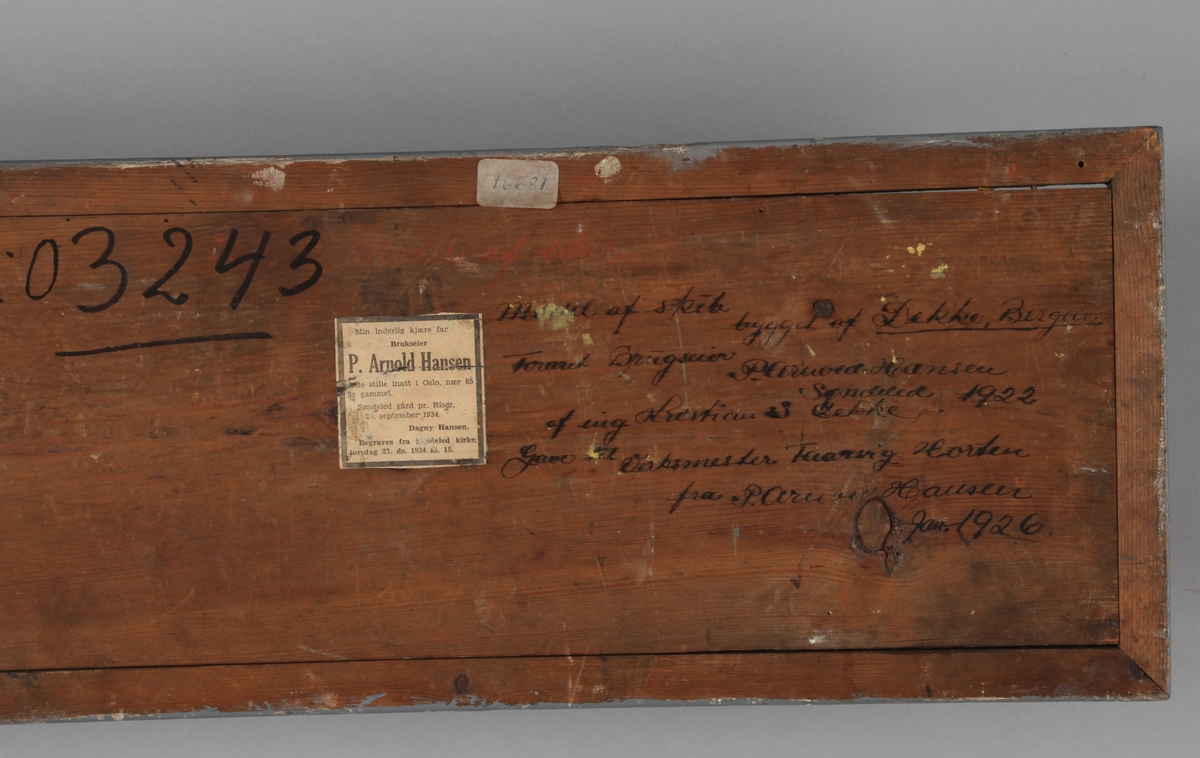 :03243
Min inderlig kjære far
Brukseier
P. Arnold Hansen
døde stille inatt i Oslo, nær 65
år gammel.
Søndeled gård pr. Risør,
september 1934.
Dagny Hansen.
Begraves fra Søndeled kirke
torsdag 27. ds. 1934 kl. 15.
Modél af skib
bygget af Dekke, Bergen.
Foræret Brugseier
P. Arnold Hansen
Søndeled 1922
af ing Kristian S Dekke.
Gave til Voksmester Horten
fra P. Arnold Hansen
Jan. 1926.